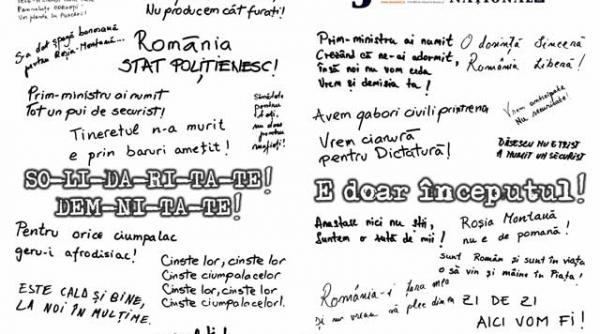 Nu producem cât furați!
S-a dat șpagă
pentru Roșia-Montană...
România
STAT POLIȚIENESC!
Prim-ministru ai numit
Tot un pui de securist!
Sănătate
pentru
toți,
nu doar
pentru
mafioți!
Tineretul n-a murit
e prin baruri amețit!
SO-LI-DA-RI-TA-TE!
DEM-NI-TA-TE!
Pentru orice ciumpalac
geru-i afrodisiac!
Cinste lor, cinste lor
Cinste ciumpalacelor
Cinste lor, cinste lor
Cinste ciumpalacelor!
ESTE CALD ȘI BINE,
LA NOI ÎN MULȚIME.
NAȚIONALE
Prim-ministru ai numit
Crezând că ne-ai adormit,
Însă noi nu vom ceda
Vrem și demisia ta!
O dorință sinceră
România Liberă!
Avem gabori civili printre noi
Vrem anticipate
Nu securitate!
Vrem cianură
pentru Dictatură!
BĂSESCU NU E TRIST
A NUMIT UN SECURIST
E doar începutul!
Anastase nici nu știi,
Suntem o sută de mii!
Roșia Montană
nu e de pomană!
Sunt Român și sunt în viață
O să vin și mâine în Piață!
România-i țara mea
Și nu vreau să plec din ea
21 DIN 21
AICI VOM FI!